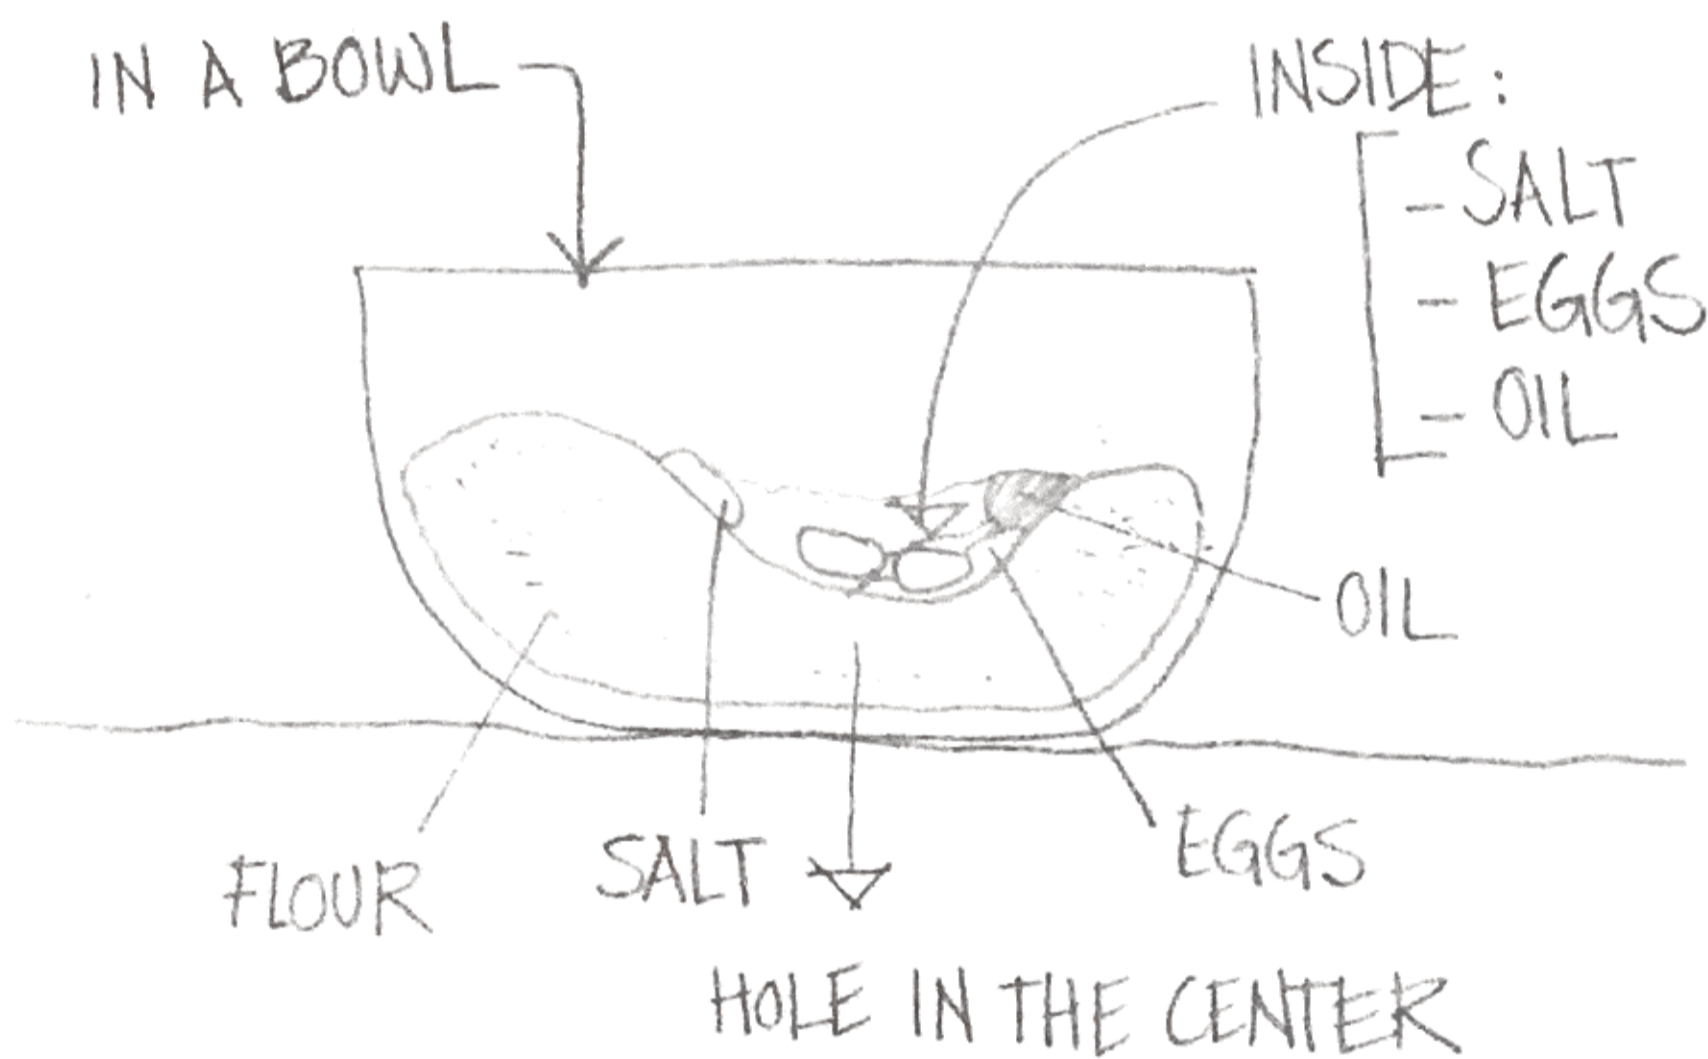 IN A BOWL
INSIDE:
- SALT
- EGGS
- OIL
OIL
FLOUR
SALT
EGGS
HOLE IN THE CENTER